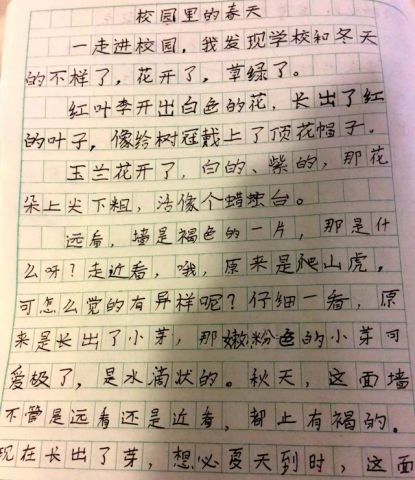 校园里的春天
一走进校园，我发现学校和冬天
的不样了，花开了，草绿了。
红叶李开出白色的花，长出了红
的叶子，像给树冠戴上了顶花帽子。
玉兰花开了，白的、紫的，那花
朵上尖下粗，活像个蜡烛台。
远看，墙是褐色的一片，那是什
么呀？走近看，哦，原来是爬山虎，
可怎么觉的有异样呢？仔细一看，原
来是长出了小芽，那嫩粉色的小芽可
爱极了，是水滴状的。秋天，这面墙
不管是远看还是近看，都上有褐的。
现在长出了芽，想必夏天到时，这面